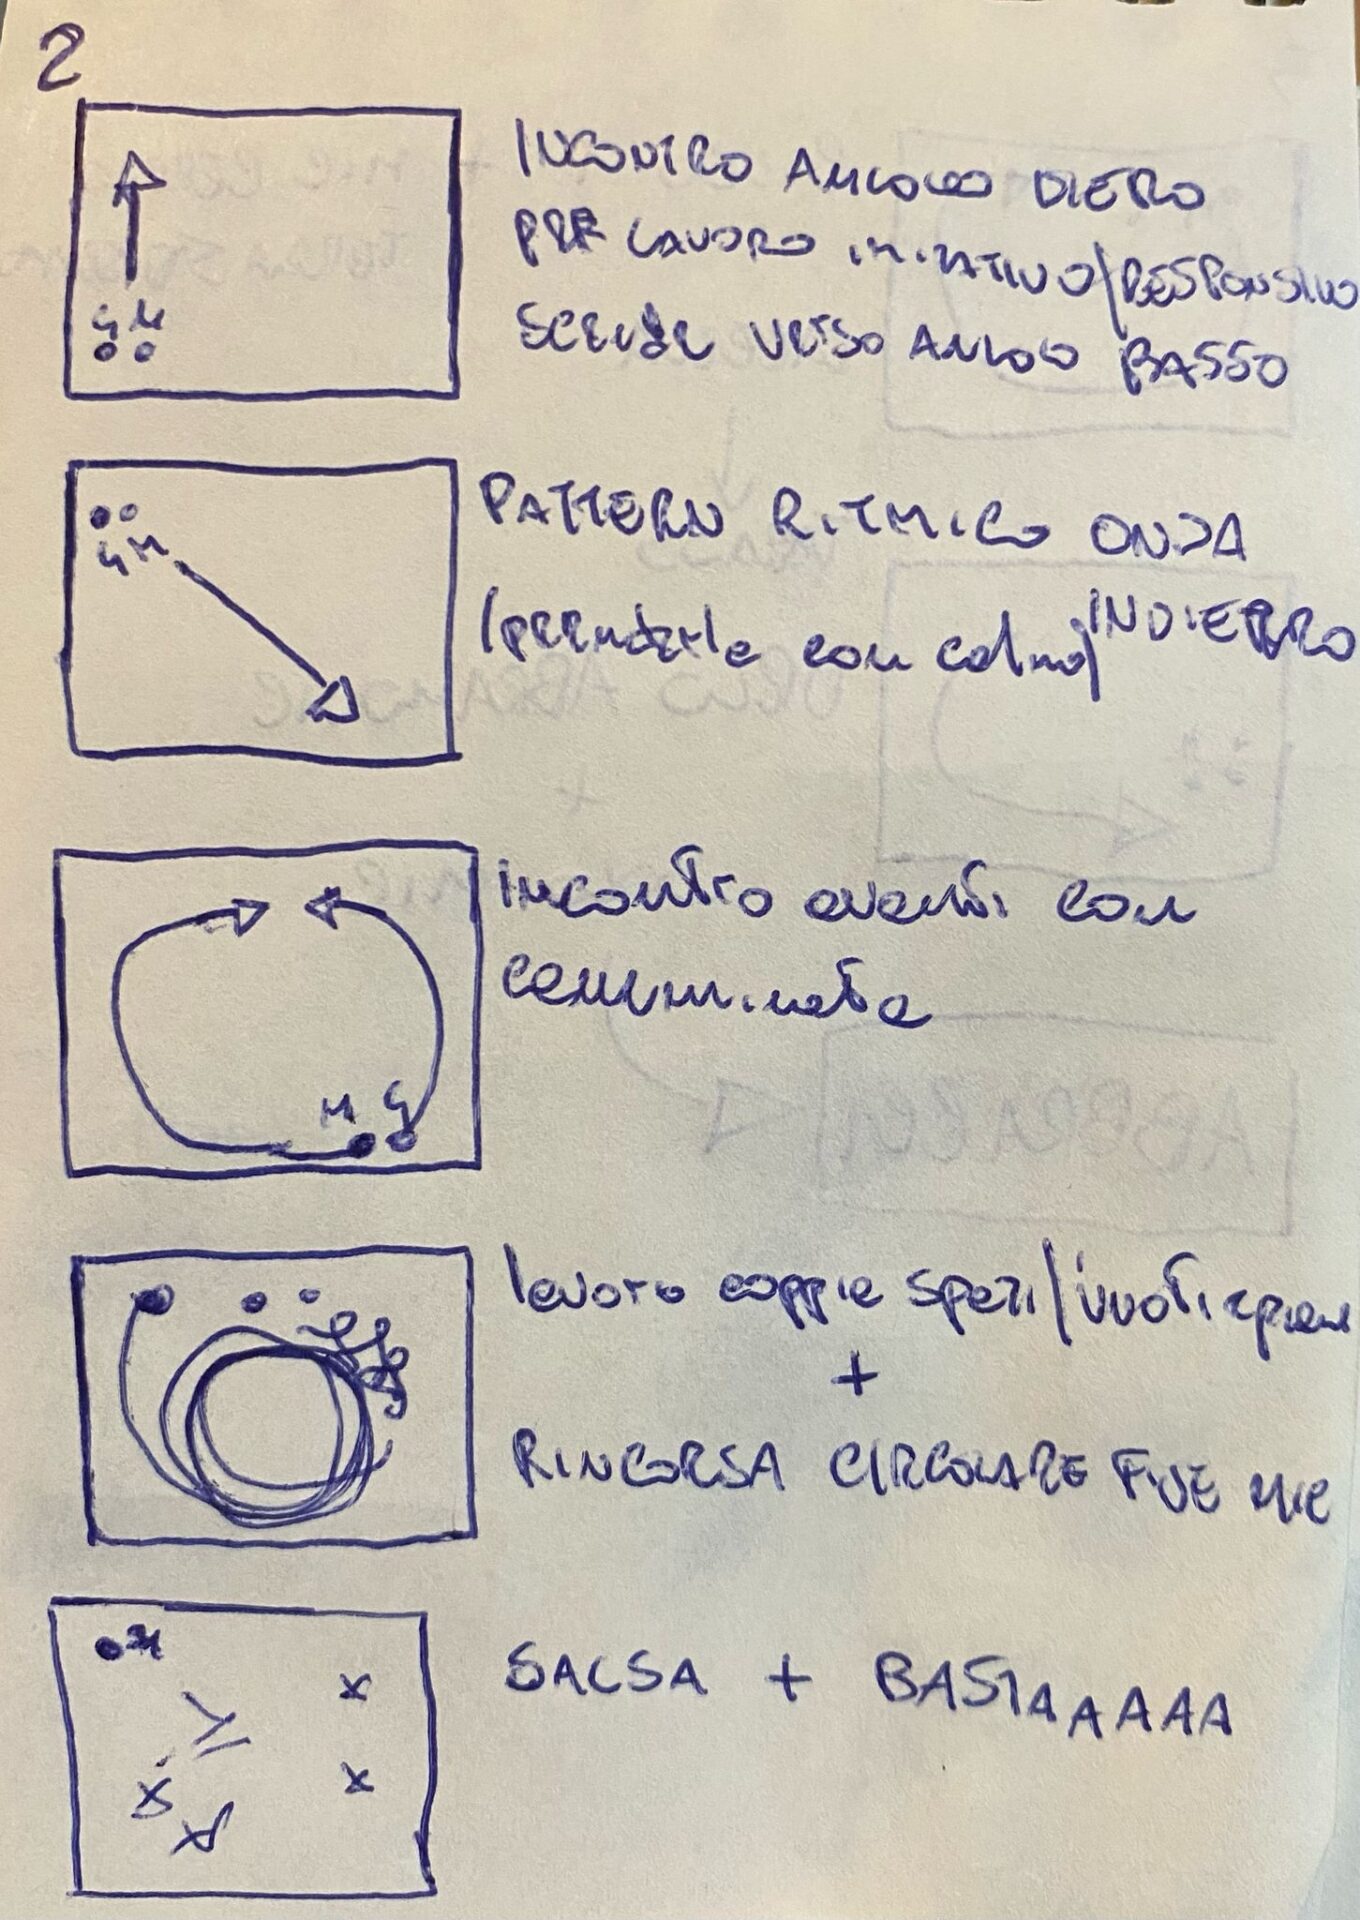 2
INCONTRO ANGOLO DIETRO
PER LAVORO IMITATIVO/RESPONSIVO
SCENDE VERSO ANGOLO BASSO
G M
PATTERN RITMICO ONDA
(prenderle con calma) INDIETRO
G M
incontro avanti con
camminata
M G
lavoro coppie spazi/vuoti
+
RINCORSA CIRCOLARE FINE MIC
SALSA + BASTAAAAA
M